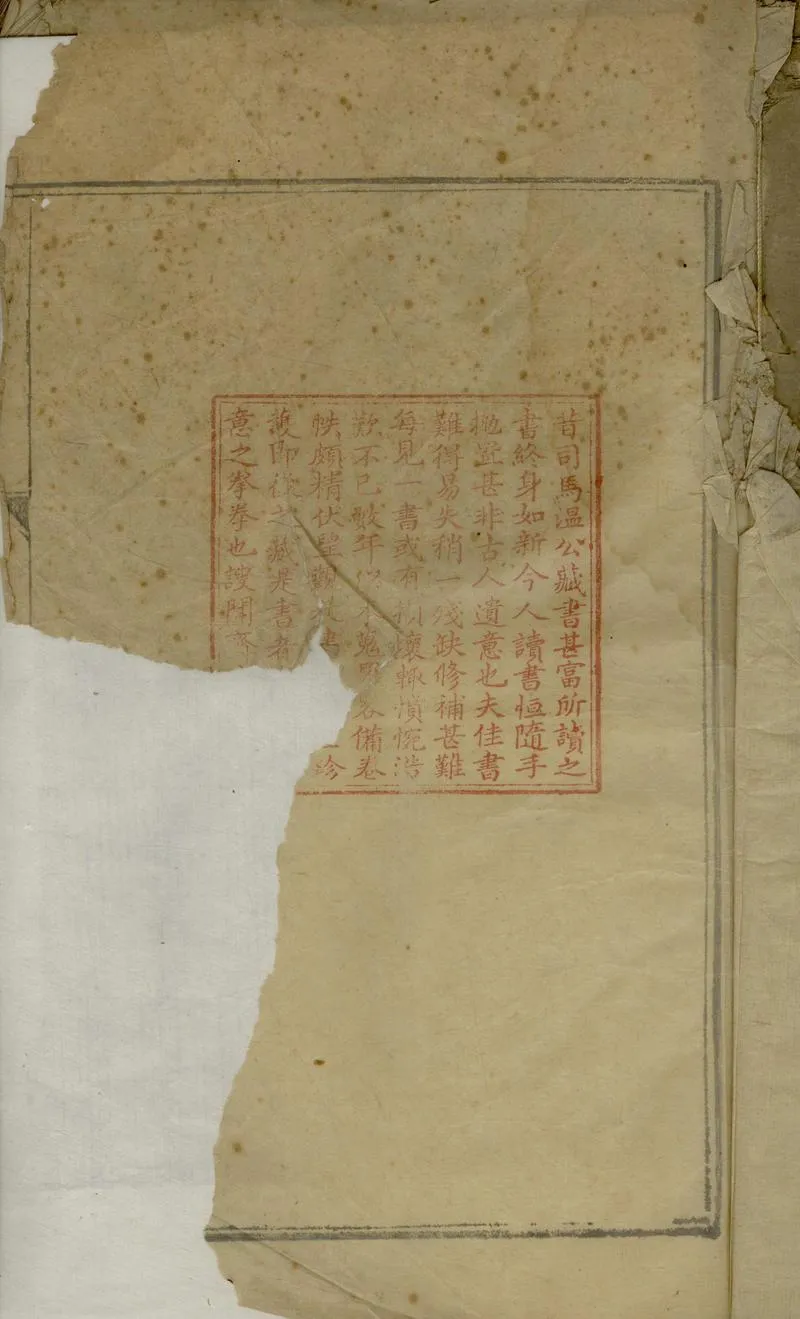 昔司馬溫公藏書甚富所讀之
書終身如新今人讀書恒隨手
拋置甚非古人遺意也夫佳書
難得易失稍一殘缺修補甚難
每見一書或有損壞輒憤惋浩
歎不已數年以來蒐羅畧備卷
帙頗精伏望觀是書 珍
護即後之藏是書者
意之拳拳也謏聞齋